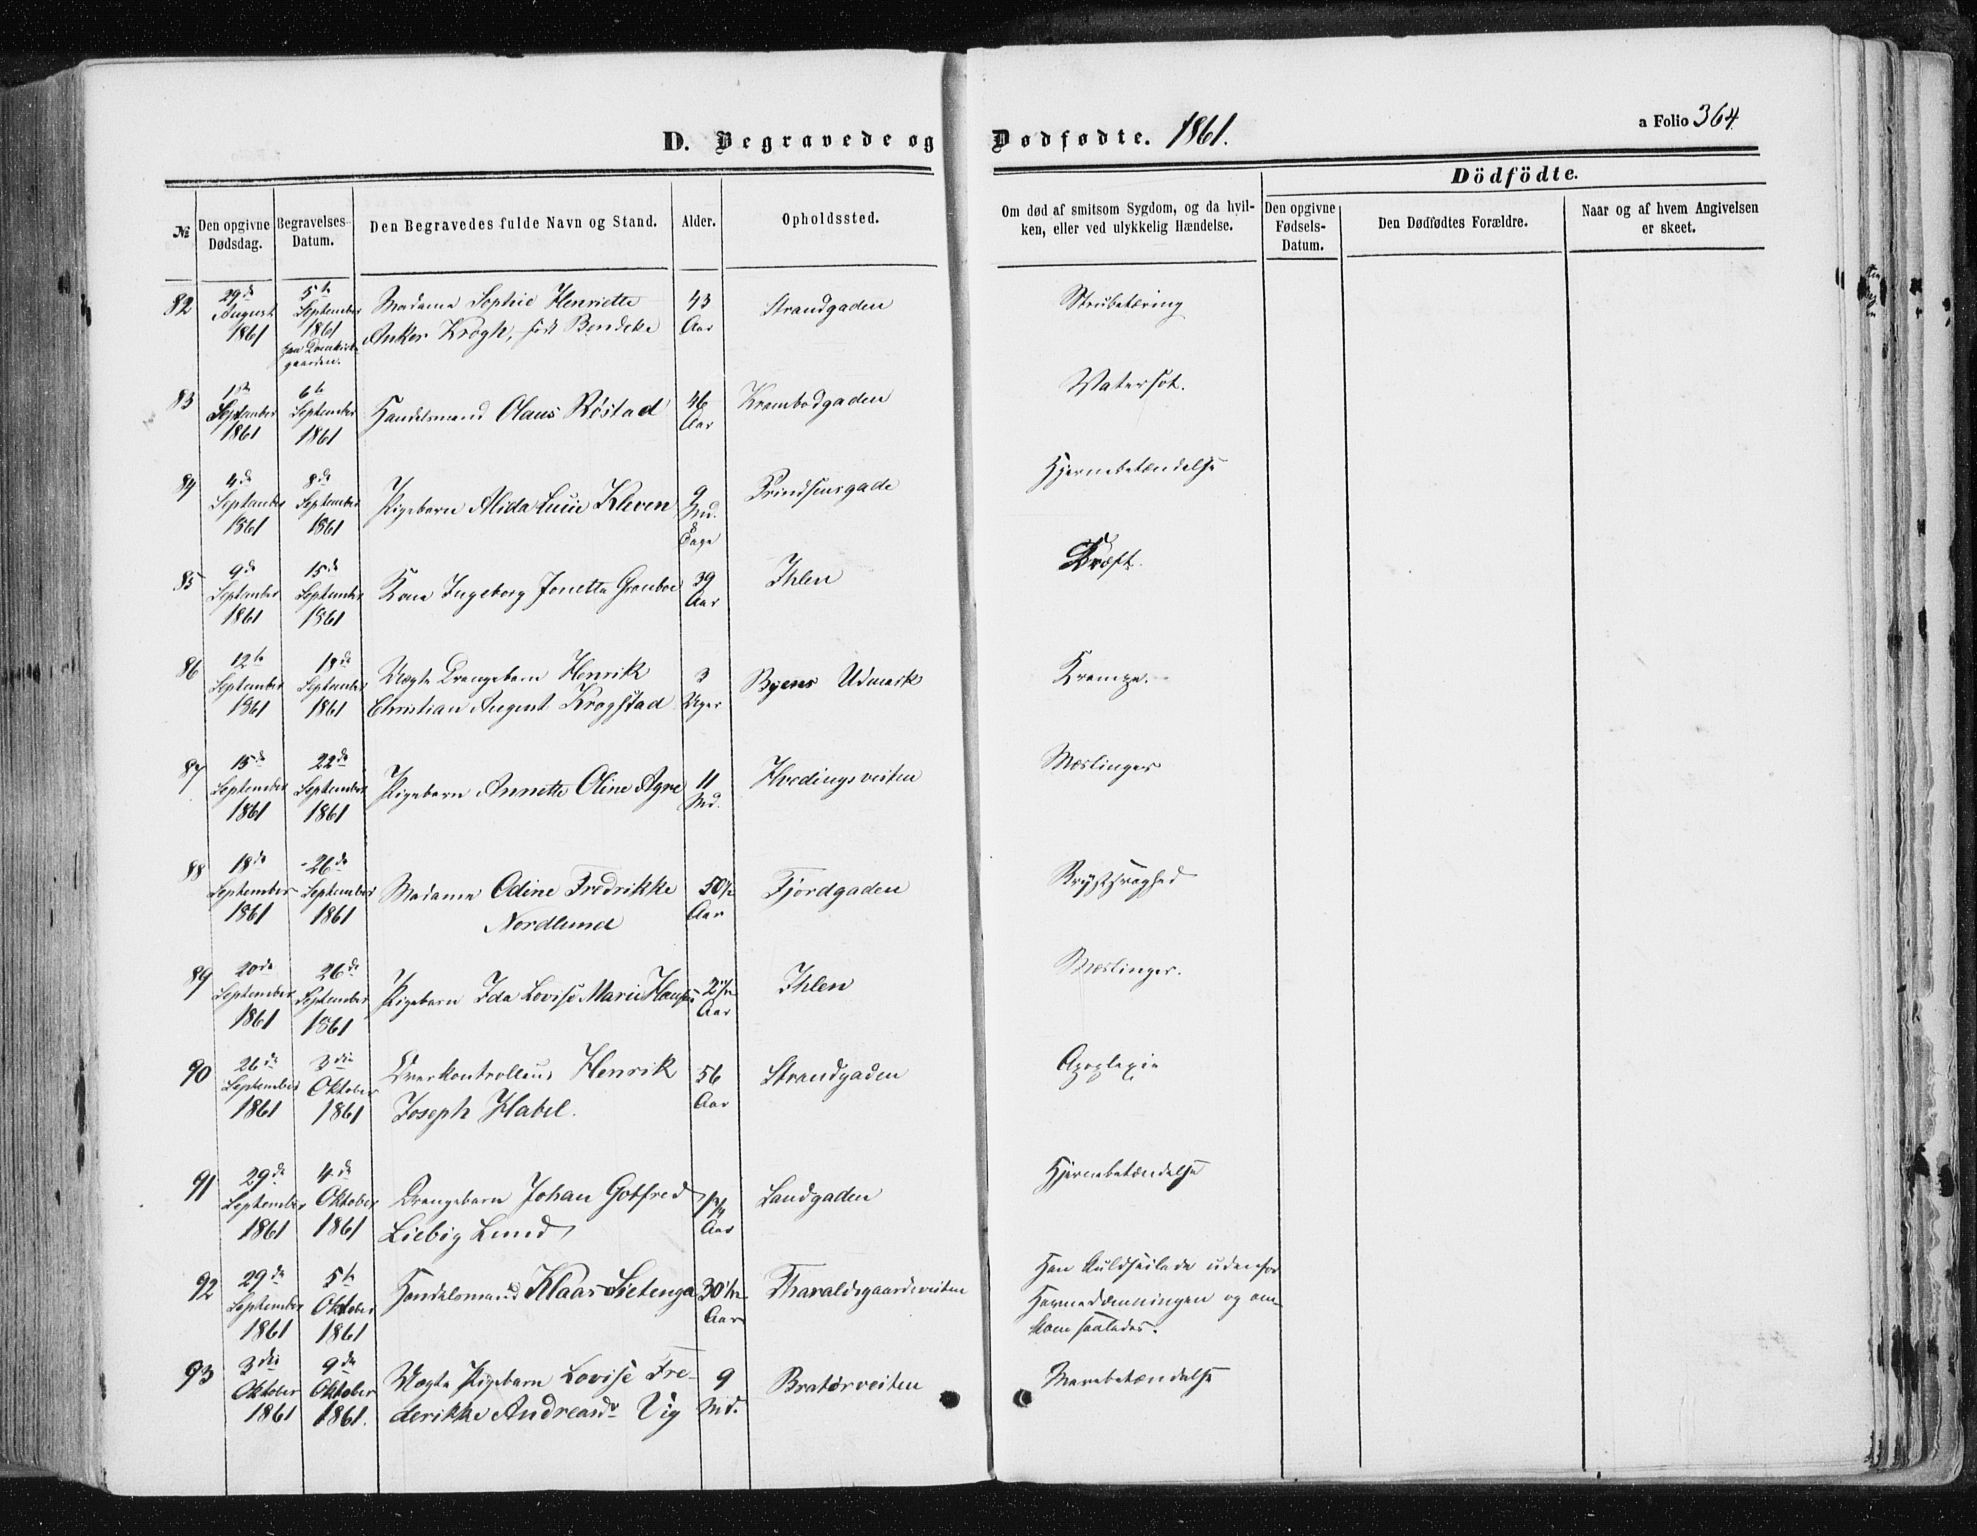 D. Begravede og Dødfødte. 1861.
a Folio 364
Dödfödte.
№
Den opgivne Dødsdag.
Begravelses-Datum.
Den Begravedes fulde Navn og Stand.
Alder.
Opholdssted.
Om død af smitsom Sygdom, og da hvil-
ken, eller ved ulykkelig Hændelse.
Den opgivne Fødsels-Datum.
Den Dødfødtes Forældre.
Naar og af hvem Angivelsen
er skeet.
82 29de August 1861 5te September 1861 Madame Sophie Henriette
Anker Krogh, født Bendeke 43 Aar Strandgaden Strubetæring
83 1ste September 1861 6te September 1861 Handelsmand Olaus Röstad 46 Aar Krambodgaden Vatersot.
84 4de September 1861 8de September 1861 Pigebarn Alida Lucie Kleven 9 Md. 8 Dage Prindsensgade Hjernebetændelse
85 9de September 1861 15de September 1861 Kone Ingeborg Jonette 39 Aar Ihlen Kræft.
86 12te September 1861 18de September 1861 Uægte Drengebarn Henrik
Christian August Krogstad 3 Uger Byens Udmark Krampe.
87 15de September 1861 22de September 1861 Pigebarn Annette Oline Agre 11 Md. Hvedingsveiten Mæslinger
88 18de September 1861 26de September 1861 Madame Odine Fredrikke
Nordlund 50½ Aar Fjordgaden Brystsvaghed
89 20de September 1861 26de September 1861 Pigebarn Ida Lovise Marie 2½ Aar Ihlen Mæslinger.
90 26de September 1861 3die Oktober 1861 Overkontrolleur Henrik
Joseph Habel. 56 Aar Strandgaden Apoplexie
91 29de September 1861 4de Oktober 1861 Drengebarn Johan Gotfred
Liebig Lund Aar Sandgaden Hjernebetændelse
92 29de September 1861 5te Oktober 1861 Handelsmand Klaas Sietenga 30½ Aar Tharaldsgaardsveiten Han kuldseilede udenfor
Havnedæmningen og om-
kom saaledes.
93 3die Oktober 1861 9de Oktober 1861. Uægte Pigebarn Lovise Fre-
derikke Andreasdr Vig 9 Md. Bratörveiten Mavebetændelse